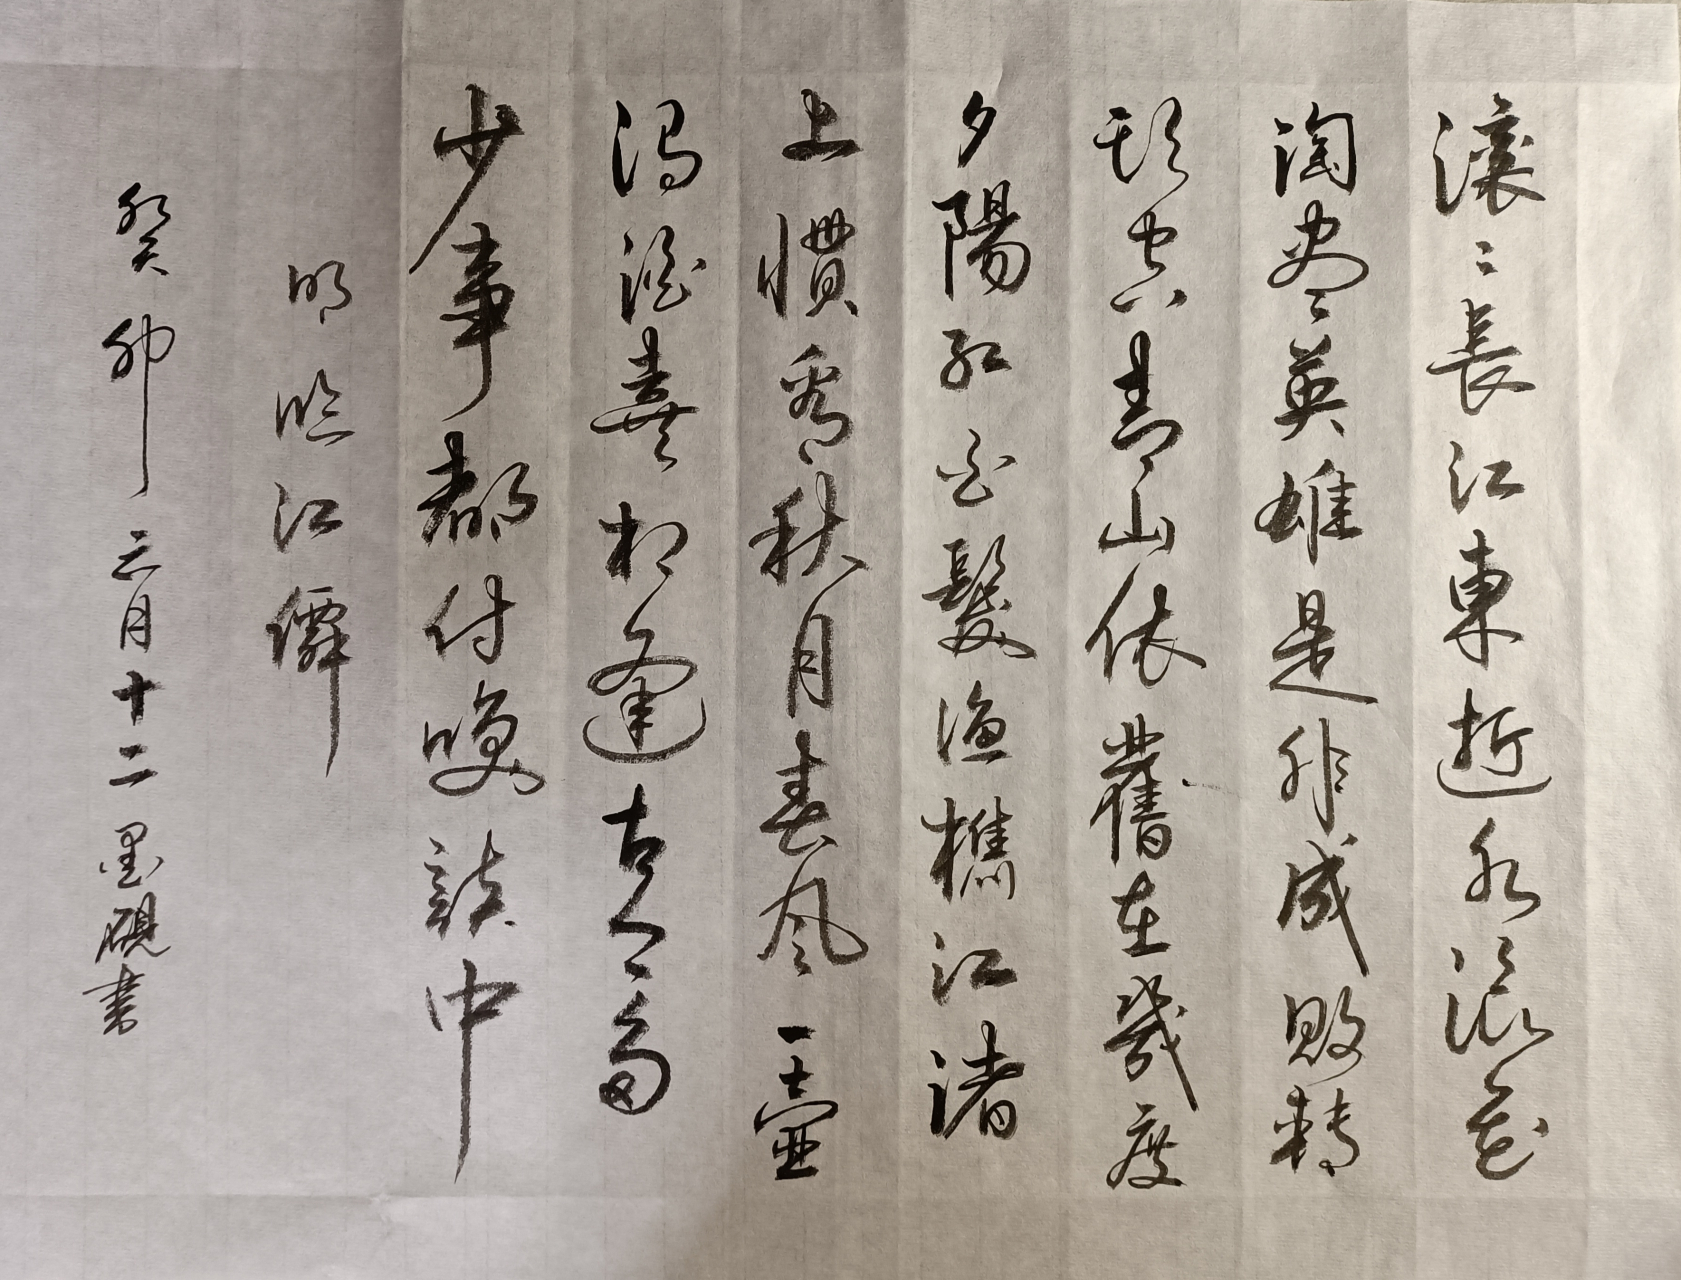 滚〻長江東逝水浪花
淘盡英雄是非成敗轉
頭空青山依舊在幾度
夕陽紅白髮漁樵江渚
上慣看秋月春風一壺
濁酒喜相逢古今多
少事都付咲談中
明臨江僊
癸卯三月十二墨硯書